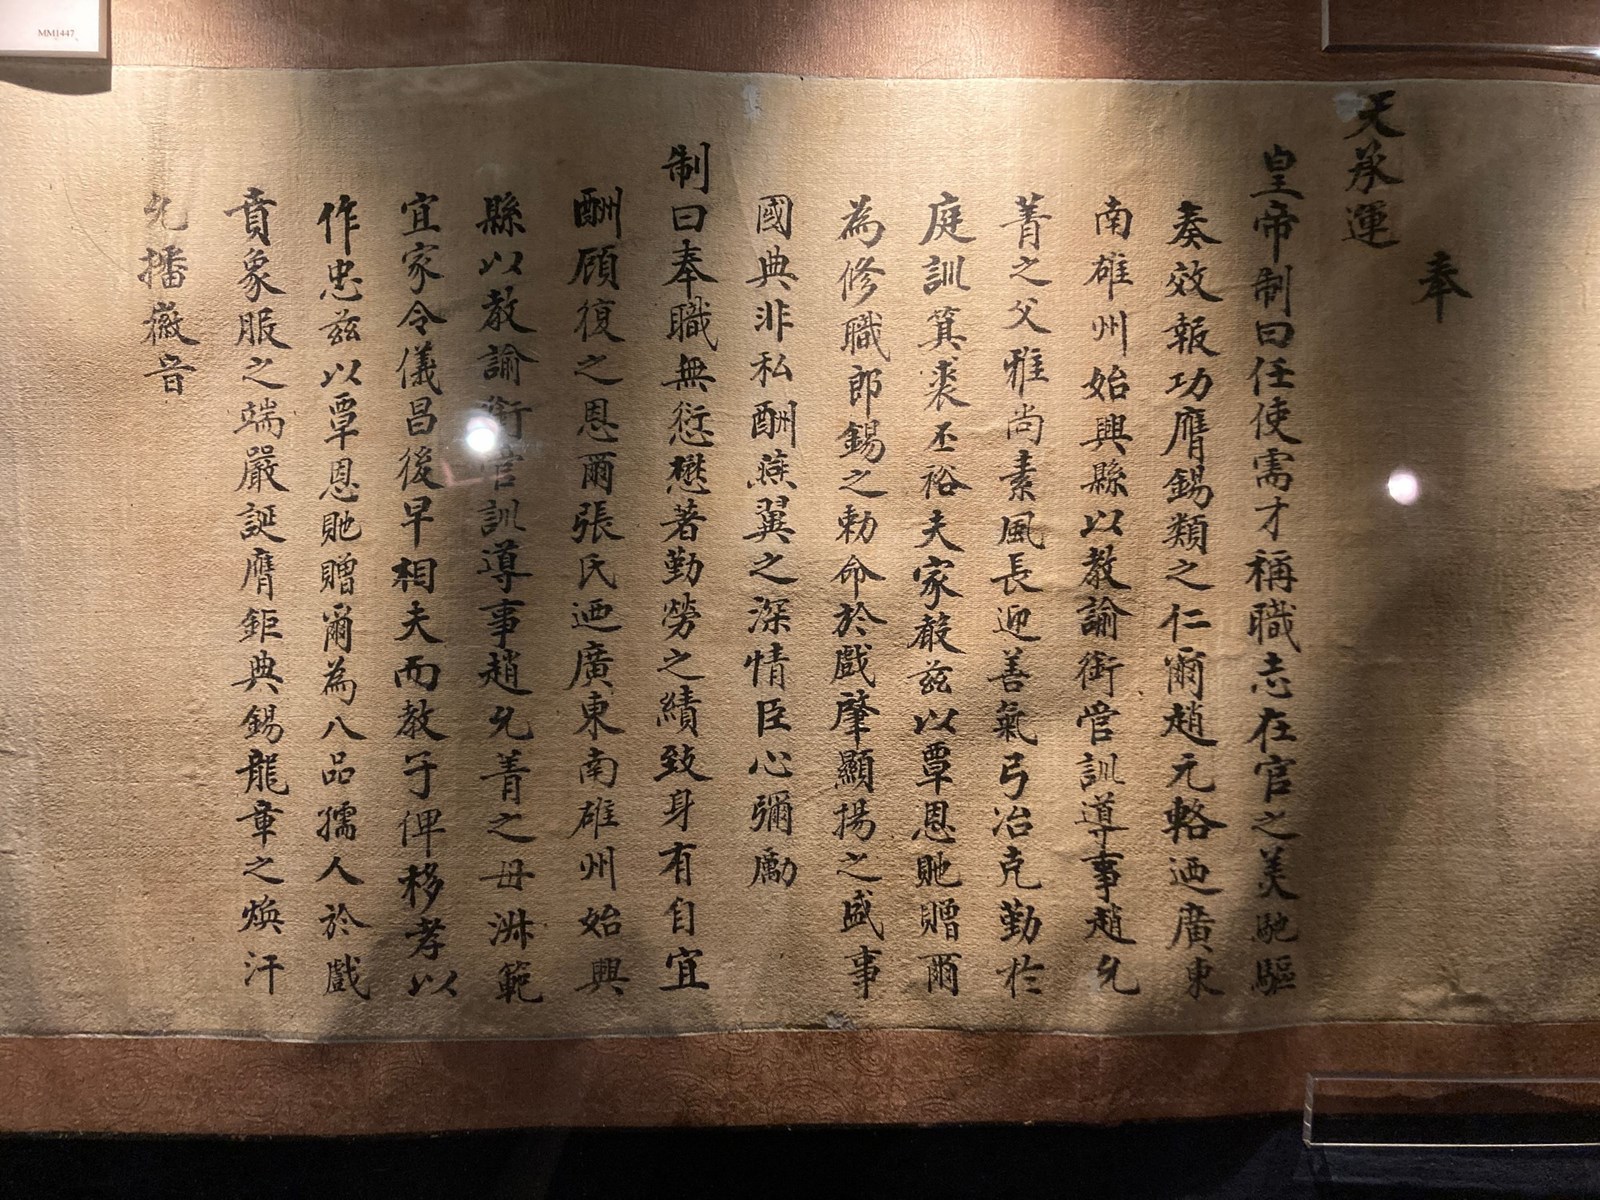 奉
天承運
皇帝制曰任使需才稱職志在官之美馳驅
奏效報功膺錫類之仁爾趙元輅迺廣東
南雄州始興縣以教諭銜管訓導事趙允
菁之父雅尚素風長迎善氣弓冶克勤於
庭訓箕裘丕裕夫家嚴茲以覃恩貤贈爾
為修職郎錫之勅命於戲肇顯揚之盛事
國典非私酬燕翼之深情臣心彌勵
制曰奉職無愆懋著勤勞之績致身有自宜
酬顧復之恩爾張氏迺廣東南雄州始興
縣以教諭銜管訓導事趙允菁之母淋範
宜家令儀昌後早相夫而教子俾移孝以
作忠茲以覃恩貤贈爾為八品孺人於戲
賁象服之端嚴誕膺鉅典錫龍章之煥汗
允播徽音
MM1447